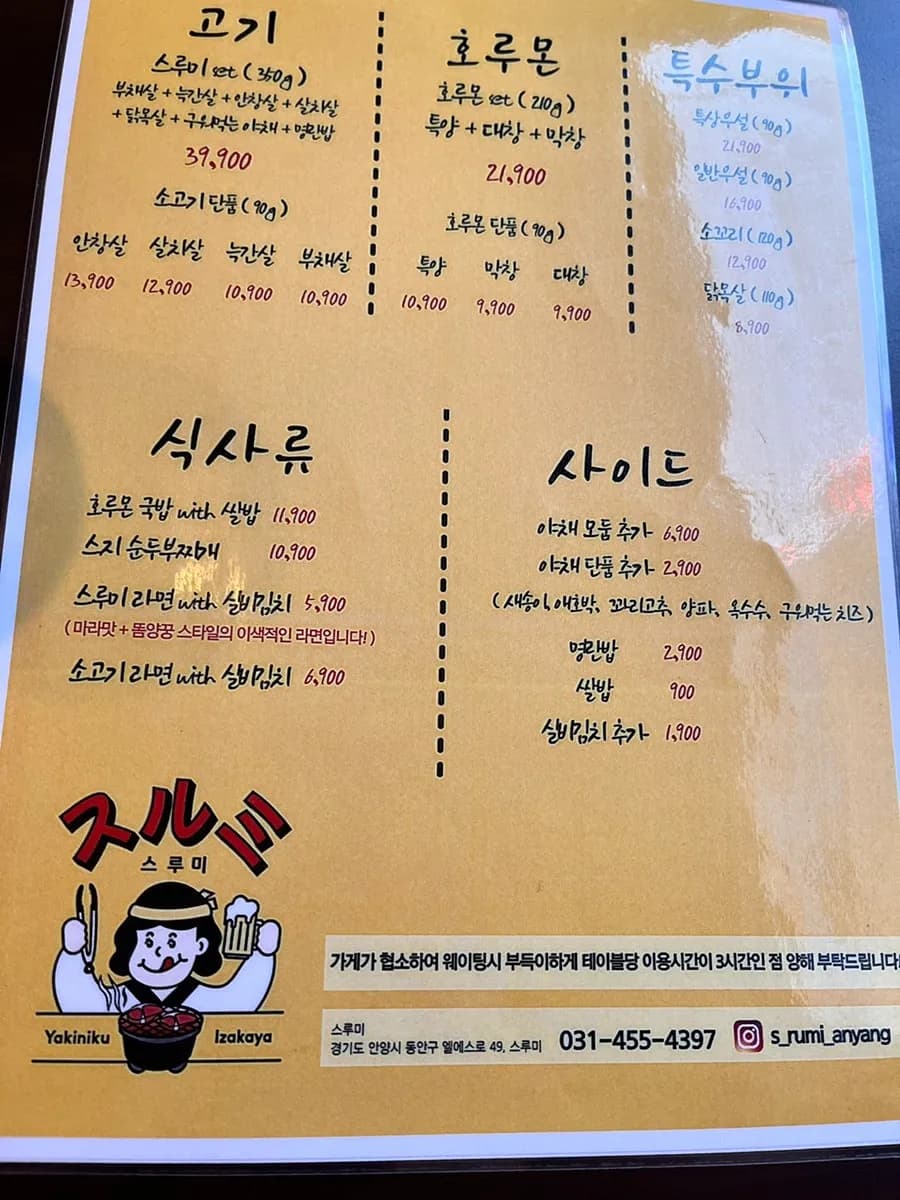 고기
스루미 set (350g)
부채살 + 늑간살 + 안창살 + 살치살
+ 닭목살 + 구워먹는 야채 + 명란밥
39,900
소고기 단품 (90g)
안창살 살치살 늑간살 부채살
13,900 12,900 10,900 10,900
호루몬
호루몬 set (210g)
특양 + 대창 + 막창
21,900
호루몬 단품 (90g)
특양 막창 대창
10,900 9,900 9,900
특수부위
특상우설 (90g)
21,900
일반우설 (90g)
16,900
소꼬리 (120g)
12,900
닭목살 (110g)
8,900
식사류
호루몬 국밥 with 쌀밥 11,900
스지 순두부찌개 10,900
스루미 라면 with 실비김치 5,900
( 마라맛 + 똠양꿍 스타일의 이색적인 라면입니다! )
소고기 라면 with 실비김치 6,900
사이드
야채 모둠 추가 6,900
야채 단품 추가 2,900
( 새송이, 애호박, 꽈리고추, 양파, 옥수수, 구워먹는 치즈 )
명란밥 2,900
쌀밥 900
실비김치 추가 1,900
スルミ
스루미
Yakiniku Izakaya
가게가 협소하여 웨이팅시 부득이하게 테이블당 이용시간이 3시간인 점 양해 부탁드립니다!
스루미
경기도 안양시 동안구 엘에스로 49, 스루미
031-455-4397
s_rumi_anyang